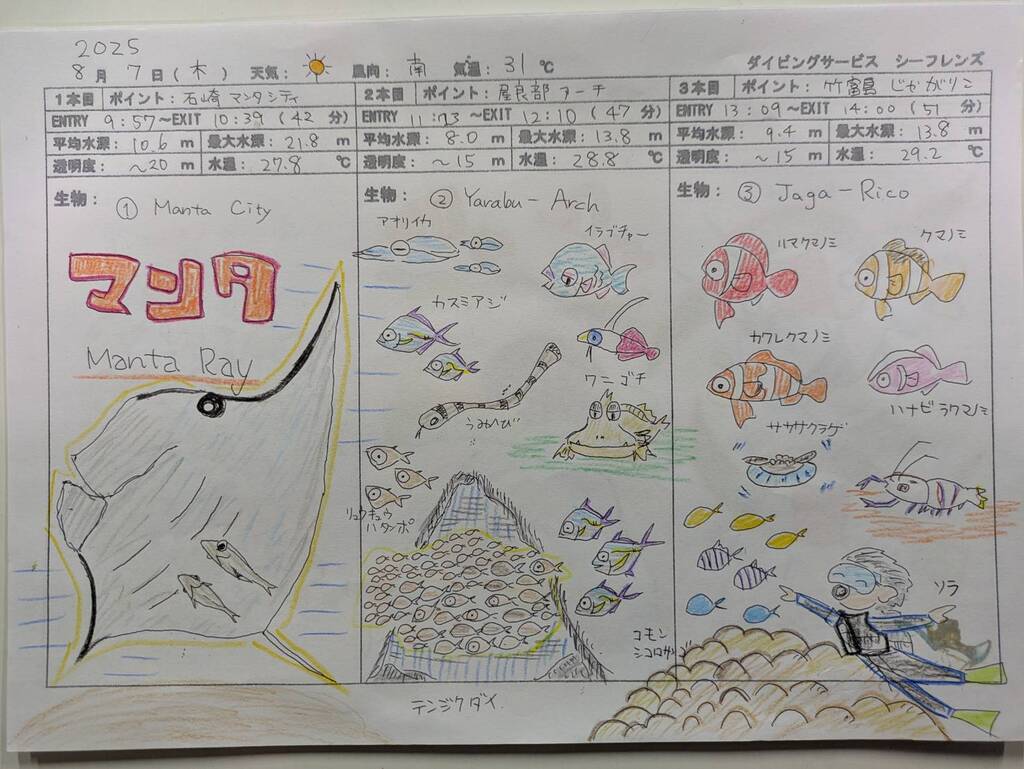 2025
8月 7日(木) 天気: 風向: 南 気温: 31℃ ダイビングサービス シーフレンズ
1本目 ポイント: 石崎 マンタシティ
ENTRY 9:57~EXIT 10:39 (42 分)
平均水深: 10.6 m 最大水深: 21.8 m
透明度: ~20 m 水温: 27.8 ℃
生物: ① Manta City
マンタ
Manta Ray
2本目 ポイント: 屋良部アーチ
ENTRY ~EXIT 12:10 (47 分)
平均水深: 8.0 m 最大水深: 13.8 m
透明度: ~15 m 水温: 28.8 ℃
生物: ② Yarabu-Arch
アオリイカ
イラブチャー
カスミアジ
ワニゴチ
うみへび
リュウキュウ
ハタンポ
テンジクダイ.
3本目 ポイント: 竹富島 じゃがりこ
ENTRY 13:09~EXIT 14:00 (51 分)
平均水深: 9.4 m 最大水深: 13.8 m
透明度: ~15 m 水温: 29.2 ℃
生物: ③ Jaga-Rico
ハマクマノミ
クマノミ
カクレクマノミ
ハナビラクマノミ
ソラ
コモン